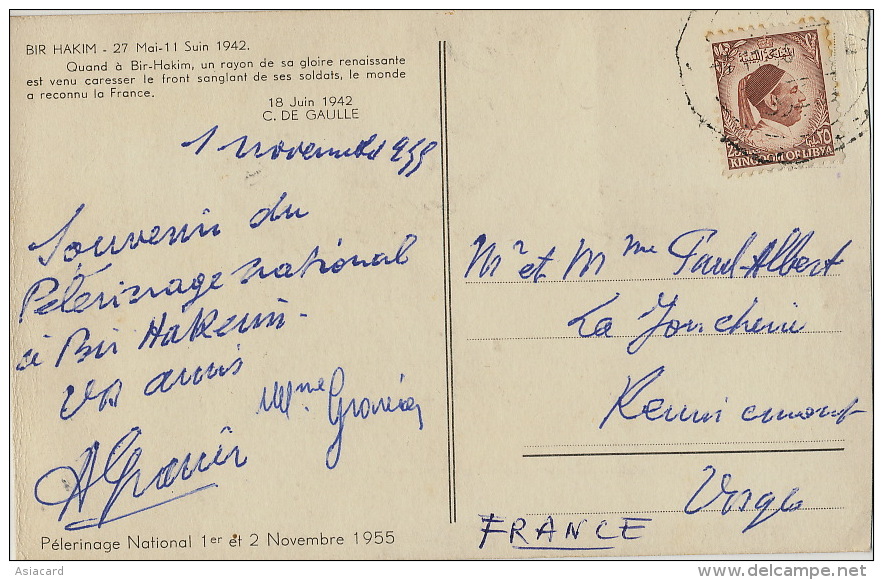 BIR HAKIM - 27 Mai-11 Suin 1942.
Quand à Bir-Hakim, un rayon de sa gloire renaissante
est venu caresser le front sanglant de ses soldats, le monde
a reconnu la France.
18 Juin 1942
C. DE GAULLE
1 Novembre 955
Souvenir du
Pélerinage National
à Bir Hakeim -
Vos amis
Mme Granier
AGranier
Pélerinage National 1er et 2 Novembre 1955
KINGDOM OF LIBYA
Mr et Mme Paul Albert
La Joncherie
Remiremont
Vosges
FRANCE
Asiacard
delcampe.net